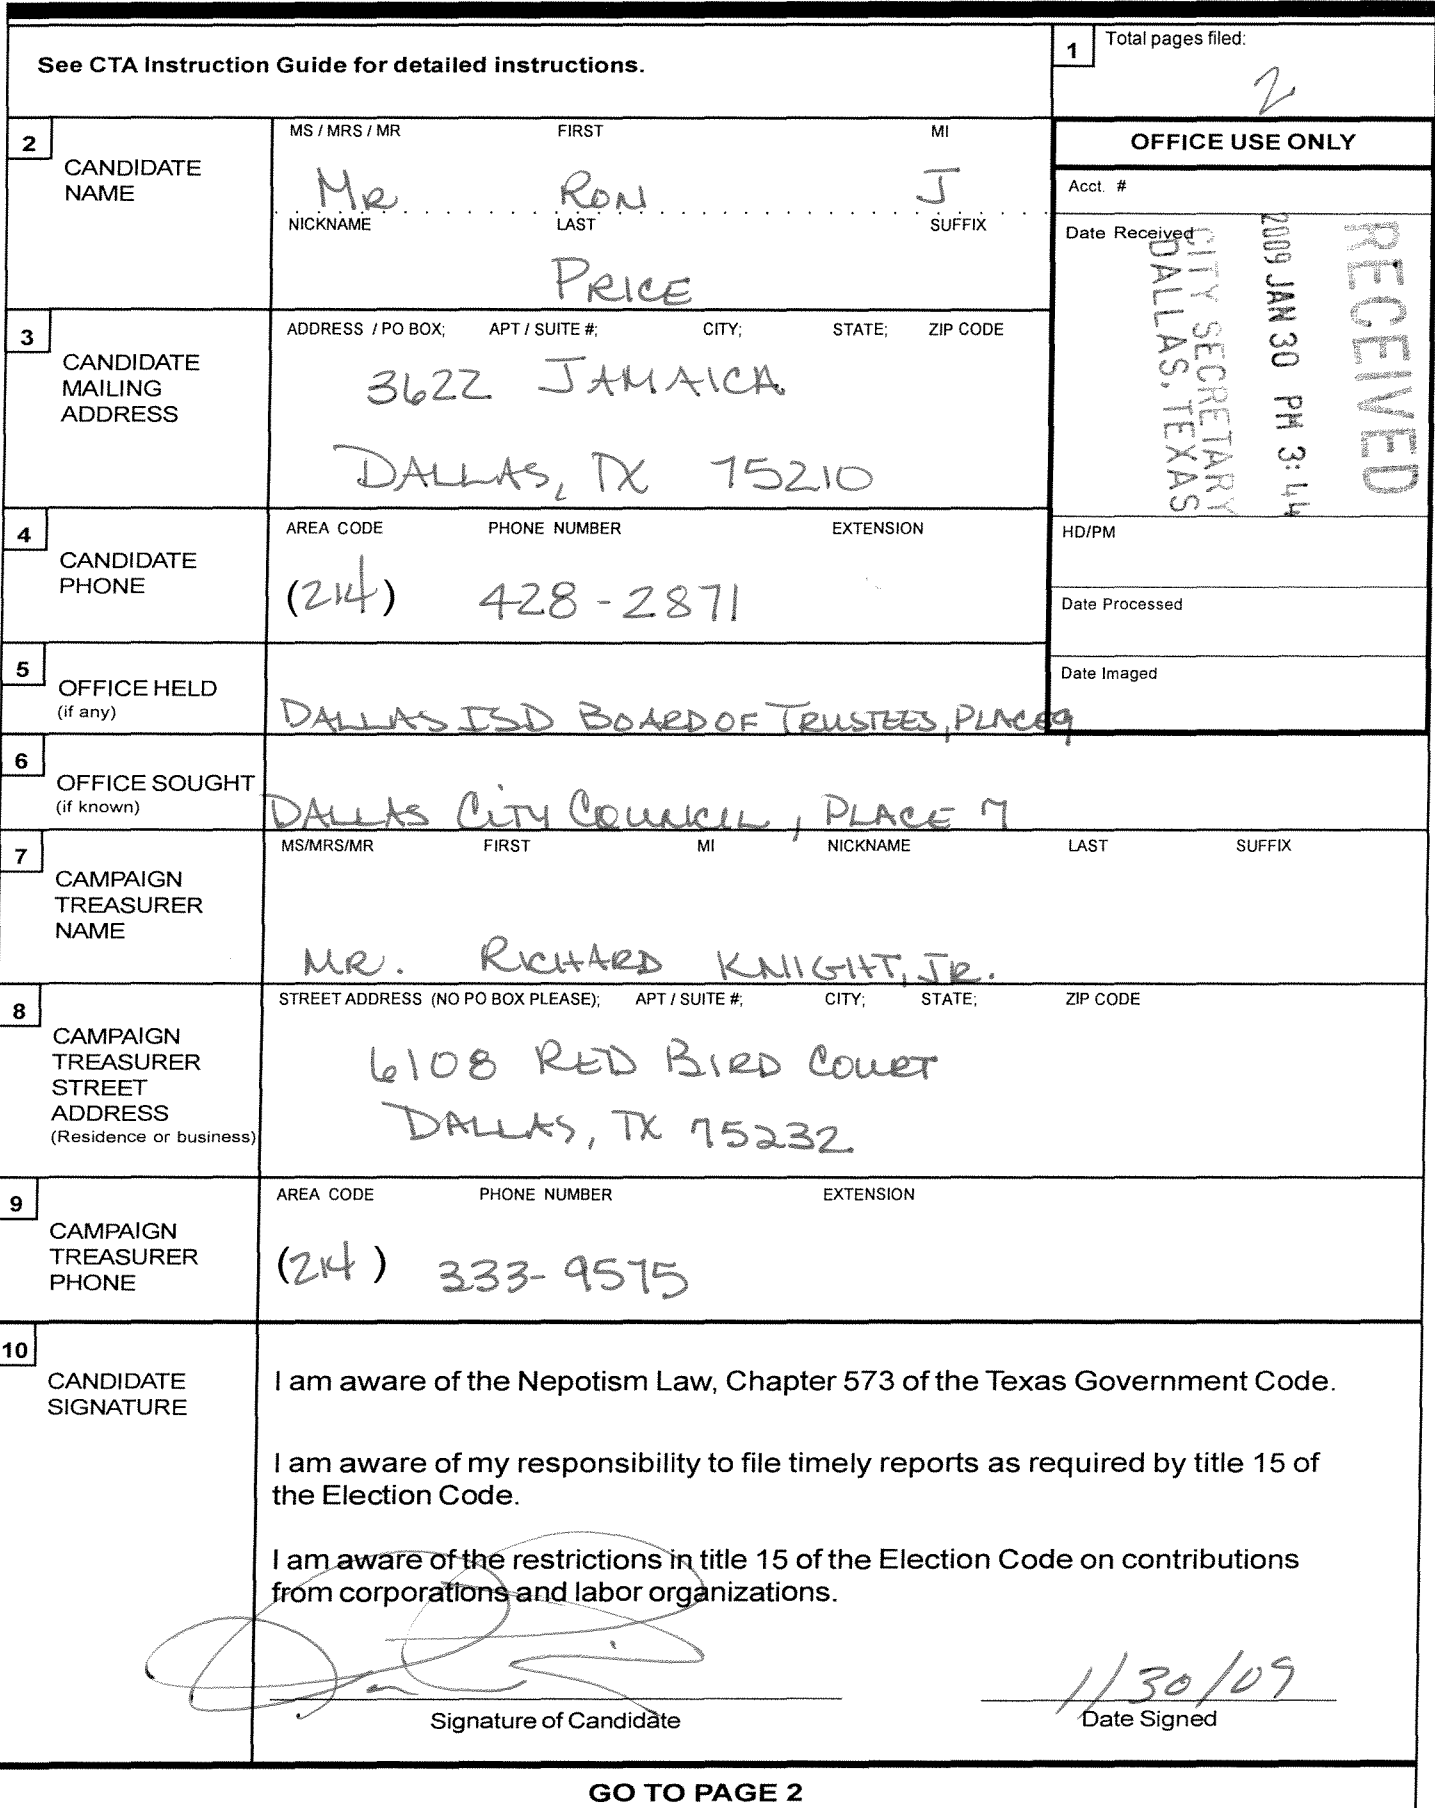 See CTA Instruction Guide for detailed instructions.
1 Total pages filed:
2
2 CANDIDATE NAME
MS / MRS / MR FIRST MI
Mr RON J
NICKNAME LAST SUFFIX
PRICE
OFFICE USE ONLY
Acct. #
Date Received
RECEIVED
2009 JAN 30 PM 3:44
CITY SECRETARY
DALLAS, TEXAS
HD/PM
Date Processed
Date Imaged
3 CANDIDATE MAILING ADDRESS
ADDRESS / PO BOX; APT / SUITE #; CITY; STATE; ZIP CODE
3622 JAMAICA
DALLAS, TX 75210
4 CANDIDATE PHONE
AREA CODE PHONE NUMBER EXTENSION
(214) 428-2871
5 OFFICE HELD
(if any)
DALLAS ISD BOARD OF TRUSTEES, PLACE 9
6 OFFICE SOUGHT
(if known)
DALLAS CITY COUNCIL, PLACE 7
7 CAMPAIGN TREASURER NAME
MS/MRS/MR FIRST MI NICKNAME LAST SUFFIX
MR. RICHARD KNIGHT, JR.
8 CAMPAIGN TREASURER STREET ADDRESS
(Residence or business)
STREET ADDRESS (NO PO BOX PLEASE); APT / SUITE #; CITY; STATE; ZIP CODE
6108 RED BIRD COURT
DALLAS, TX 75232
9 CAMPAIGN TREASURER PHONE
AREA CODE PHONE NUMBER EXTENSION
(214) 333-9575
10 CANDIDATE SIGNATURE
I am aware of the Nepotism Law, Chapter 573 of the Texas Government Code.
I am aware of my responsibility to file timely reports as required by title 15 of
the Election Code.
I am aware of the restrictions in title 15 of the Election Code on contributions
from corporations and labor organizations.
1/30/09
Signature of Candidate Date Signed
GO TO PAGE 2